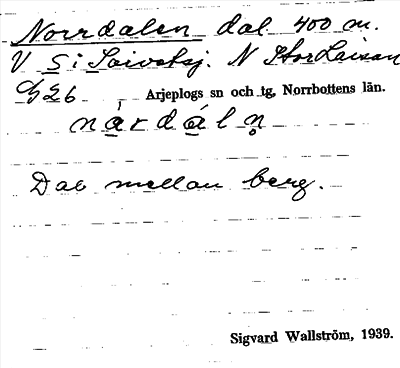 Norrdalen dal 400 m.
V S i Saivoksj. N StorLaisan
G26 Arjeplogs sn och tg, Norrbottens län.
nàrdáln̥
Dal mellan berg.
Sigvard Wallström, 1939.